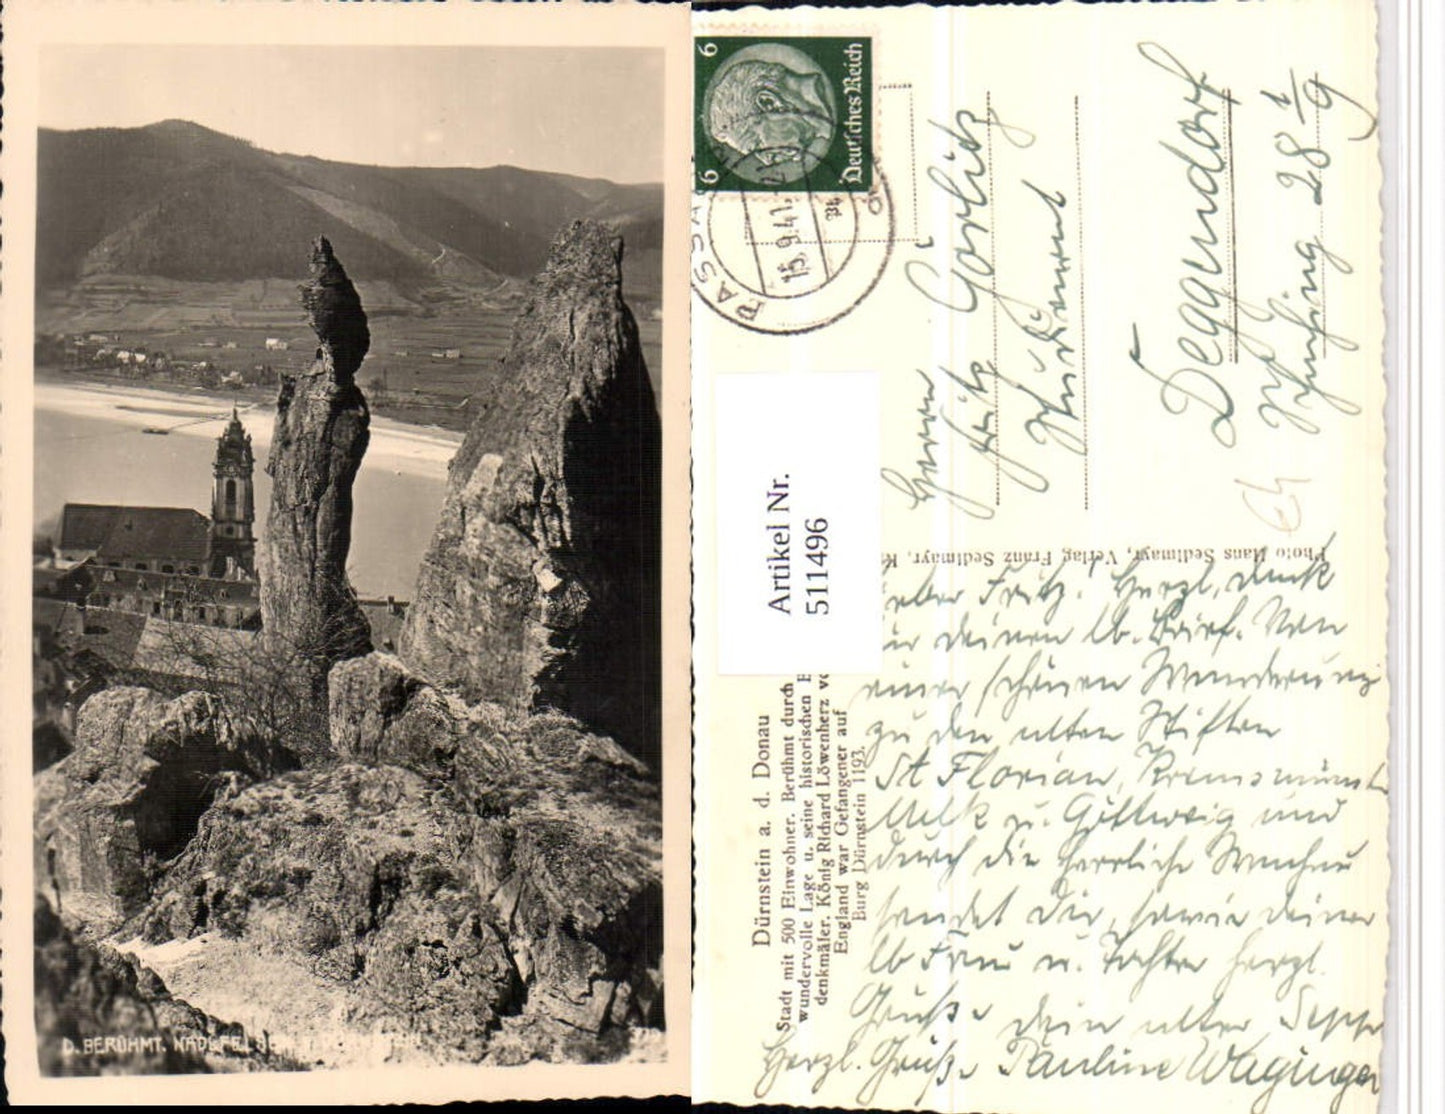 D. BERÜHMT. NADELFELSEN
6 6
Deutsches Reich
PASSAU
15.9.41
Herrn
Fritz Görlitz
Deggendorf
28 1/9
Artikel Nr.
511496
Photo Hans Sedlmayr, Verlag Franz Sedlmayr, K
Dürnstein a. d. Donau
Stadt mit 500 Einwohner. Berühmt durch
wundervolle Lage u. seine historischen
denkmäler. König Richard Löwenherz vo
England war Gefangener auf
Burg Dürnstein 1193.
Fritz. Herzl. Dank
für deinen lb. Brief. Von
einer schönen Wanderung
zu den alten Stiften
St Florian, Kremsmünst
Melk u. Göttweig und
durch die herrliche Wachau
sendet dir, sowie deiner
lb Frau u. Tochter herzl.
Grüße dein alter Sepp
Herzl. Grüße Pauline Waginger